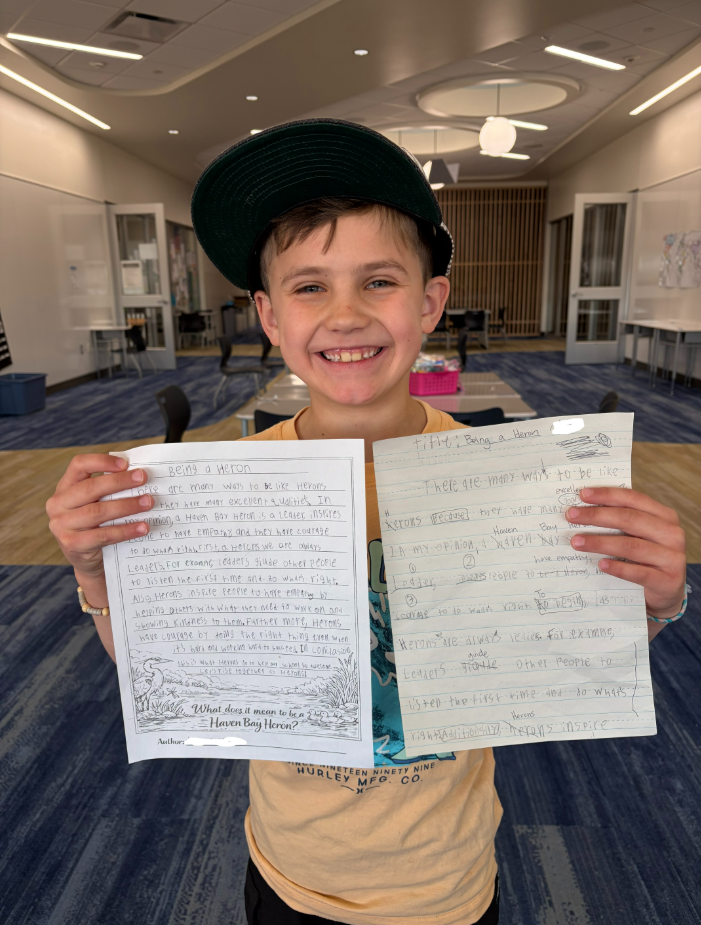 Being a Heron
There are many ways to be like Herons
they have many excellent qualities. In
my opinion, a Haven Bay Heron is a Leader, inspires
people to have empathy and they have courage
to do whats right. First, a Herons we are always
Leaders. For example Leaders guide other people
to listen the first time and do whats right.
Also, Herons inspire people to have empathy by
helping others with what they need to work on and
showing kindness to them. Farther more, Herons
have courage by doing the right thing even when
it's hard and
In conclusion
this is what Herons
together as Herons!
What does it mean to be a
Haven Bay Heron?
Author:
title: Being a Heron
There are many ways to be like
H
excellent
herons because they have many
Haven Bay
In my opinion, a haven bay
1 2
have empathy
Leader, people to be
3
To
courage to do whats right
Herons are always leaders For example
guide
Leaders other people to
listen the first time and do whats
Herons
right Additionally herons inspire
SINCE NINETEEN NINETY NINE
HURLEY MFG. CO.